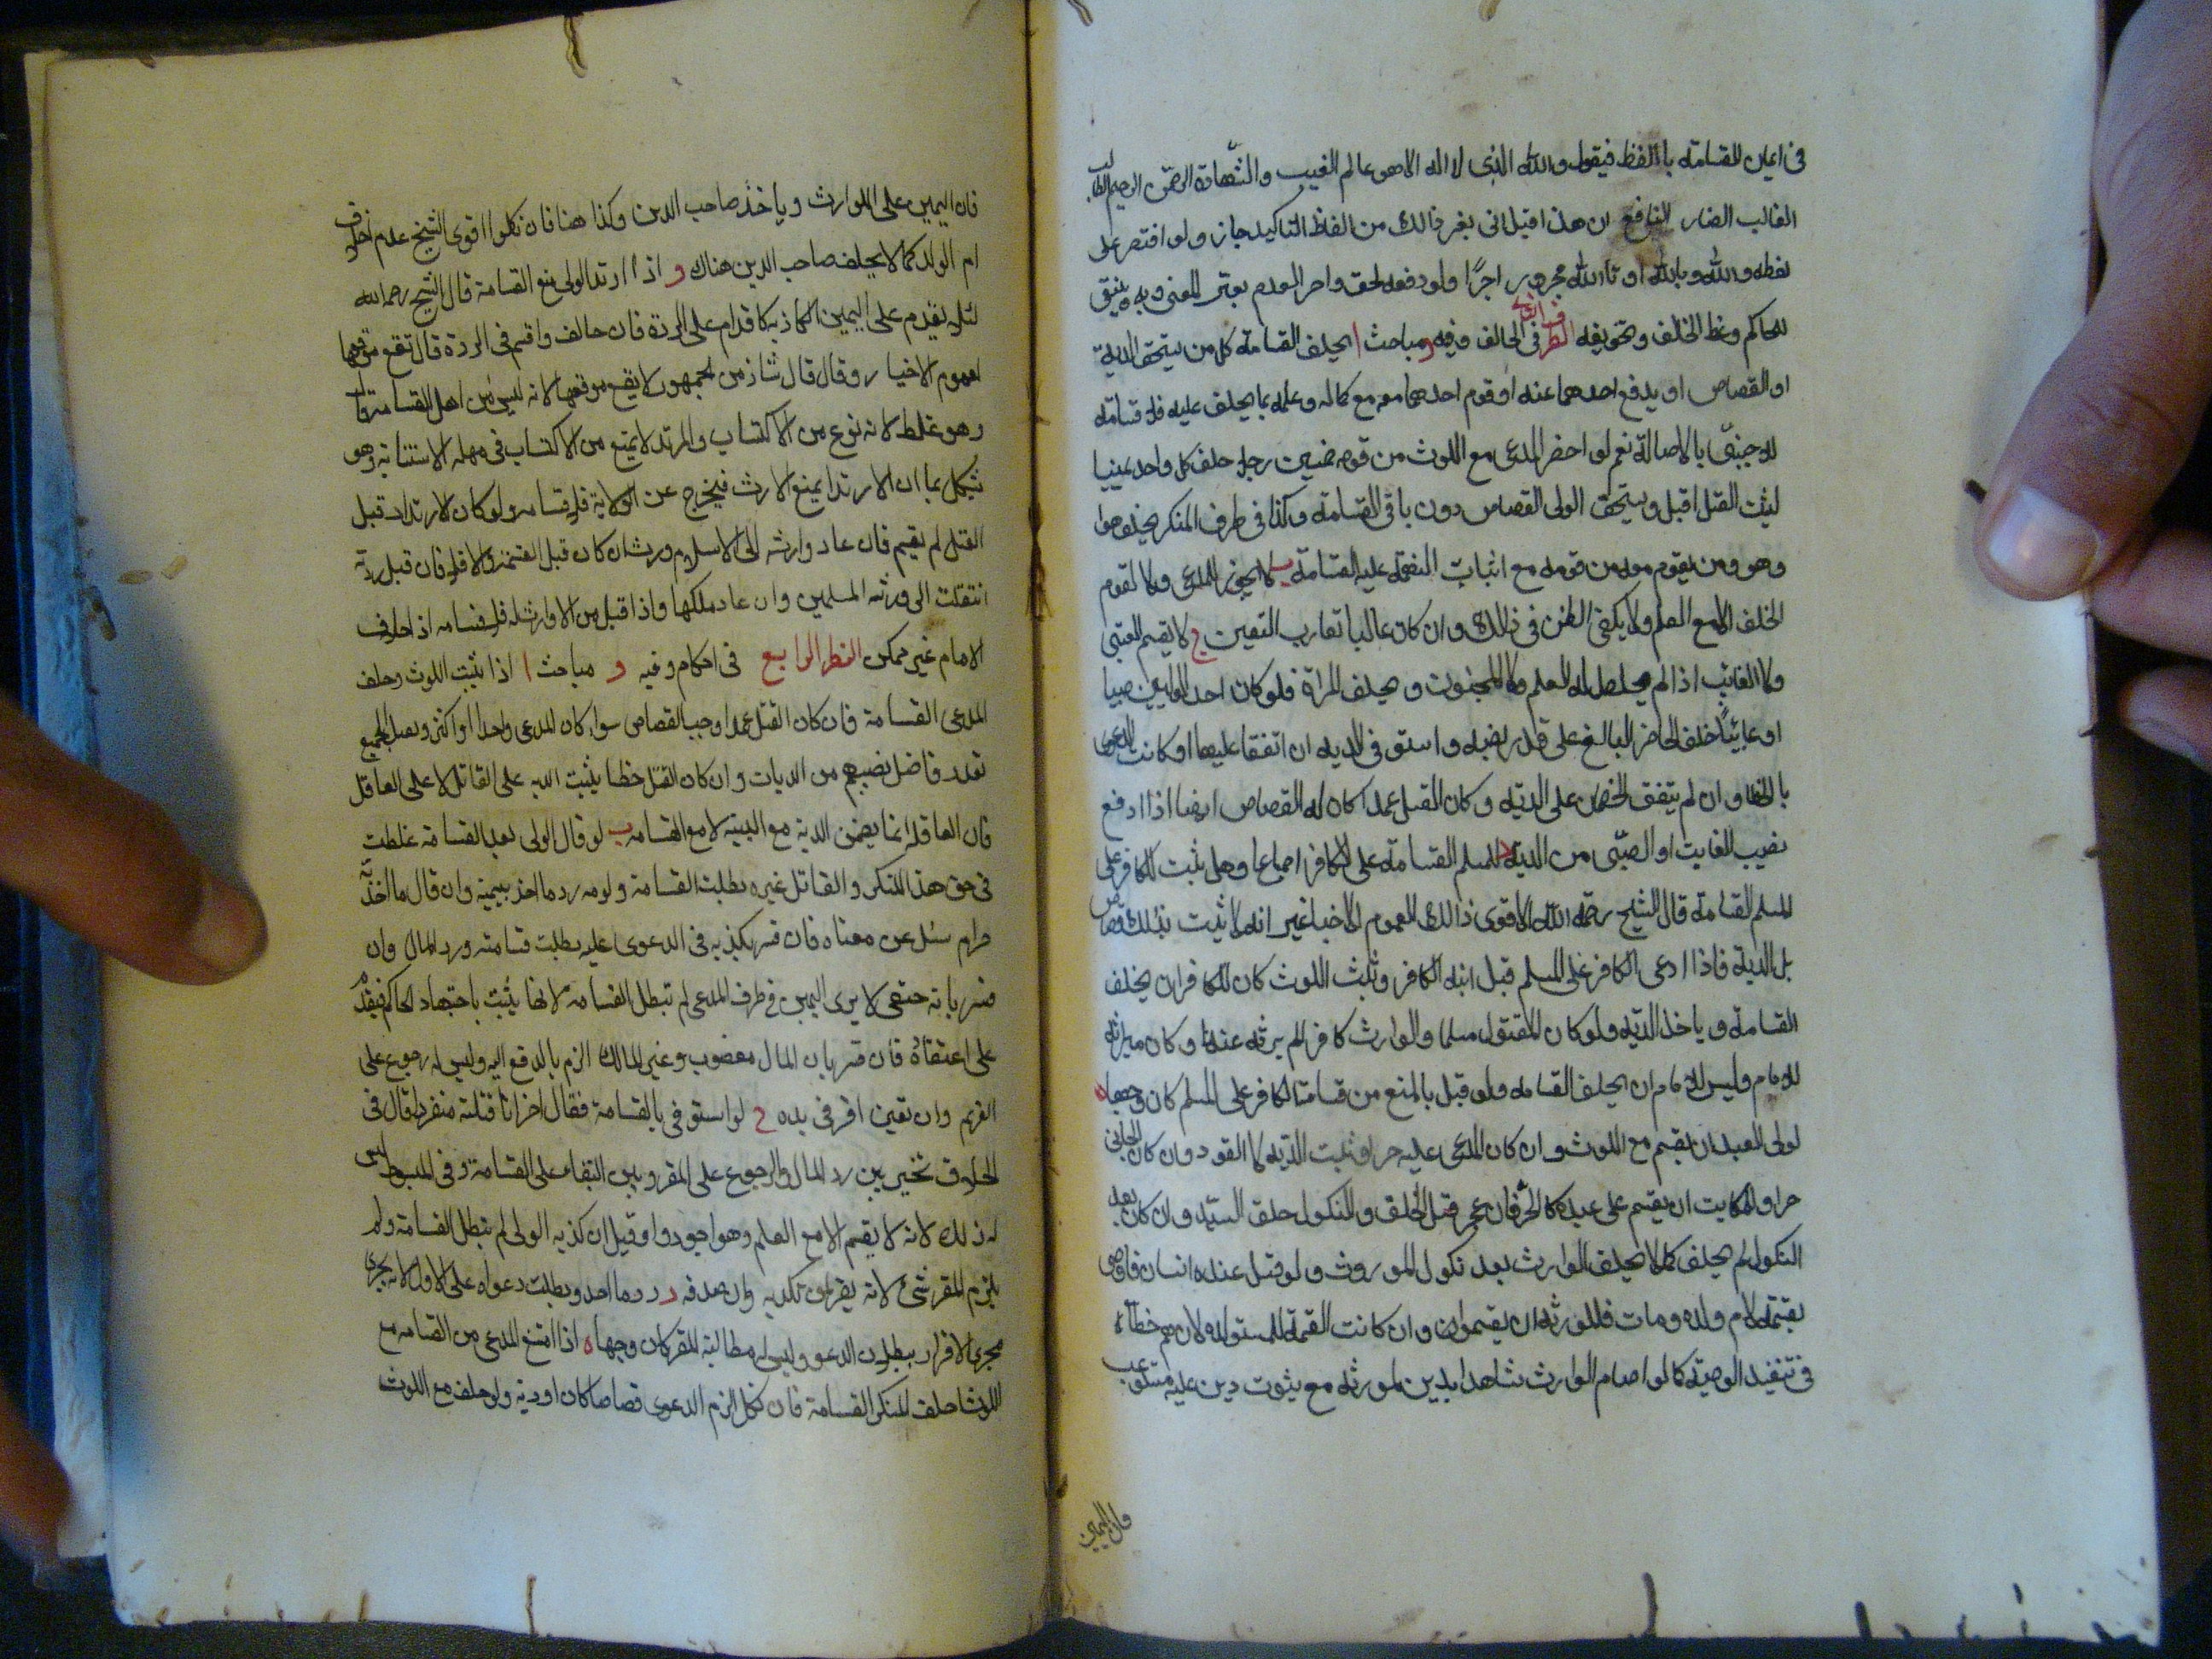 في ايمان القسامة باللفظ فيقول والله الذي لا اله الا هو عالم الغيب والشهادة الرحمن الرحيم الطالب
الغالب الضار النافع ان هذا قتيل ابي بغير ذالك من الفاظ التاكيد جاز ولو اقتصر على
لفظه والله وبالله او تالله مجرور اجزا ولو رفعه لحق واحد المعدم بغير المعنى وبه ينبغي
للحاكم وعظ الحالف وتخويفه النظر الثالث في الحالف وفيه و مباحث ا يحلف القسامة كل من يستحق الدية
او القصاص او يدفع احدهما عنه او قوم احدهما معه مع كماله وعلمه بما يحلف عليه فلا قسامة
للاجنبي بالاصالة نعم لو احضر المدعي مع اللوث من قومه خمسين رجلا حلف كل واحد يمينا
ليثبت القتل قبل ويستحق الولي القصاص دون باقي القسامة وكذا في طرف المنكر يحلف هو
وهو ومن يقوم معه من قومه مع اثبات عليه القسامة ب لا يجوز للمدعي ولا لقوم
الحلف الا مع العلم ولا يكفي الظن في ذالك وان كان غالبا تقارب اليقين ج لا يقسم الصبي
ولا الغائب اذا لم يحصل له العلم ولا المجنون ويحلف المراة فلو كان احد الوليين صبيا
او غائبا حلف الحاضر البالغ على قدر نصيبه واستوفى الدية ان اتفقا عليها او كانت الدعوى
بالخطا وان لم يتفق الخصمان على الدية وكان القتل عمدا كان له القصاص ايضا اذا دفع
نصيب الغايب او الصبي من الدية د للمسلم القسامة على الكافر اجماعا وهل يثبت للكافر على
المسلم القسامة قال الشيخ رحمه الله الاقوى ذالك لعموم الاخبار غير انه لا يثبت بذلك قصاص
بل الدية فاذا ادعى الكافر على المسلم قبل ابنه الكافر وثبت اللوث كان للكافر ان يحلف
القسامة وياخذ الدية ولو كان المقتول مسلما والوارث كافر لم يرثه عندنا وكان ميراثه
للامام وليس للامام ان يحلف القسامة ولو قيل بالمنع من قسامة الكافر على المسلم كان وجها ه
لولي العبد ان يقسم مع اللوث وان كان المدعي عليه حرا ويثبت الدية لا القود وان كان الجاني
حرا وللمكاتب ان يقسم على عبده كالحر فان عجز قبل الحلف والنكول حلف السيد وان كان بعد
النكول لم يحلف كما لا يحلف الوارث بعد نكول الموروث ولو قتل عنده انسان فاوصى
بقيمته لام ولده ومات فللورثة ان يقسموا وان كانت القيمة للمستولده لان لهم خطا
في تنفيذ الوصية كما لو اقام الوارث شاهدا بدين لمورثه مع ثبوت دين عليه مستوعب
فان اليمين
فان اليمين على الوارث وياخذ صاحب الدين وكذا هنا فان نكلوا اقوى الشيخ عدم احلاف
ام الولد كما لا يحلف صاحب الدين هناك و اذا ارتد الولي منع القسامة قال الشيخ رحمه الله
لئلا يقدم على اليمين الكاذبة كاقدام على الردة فان حالف واقسم في الردة قال تقع موقعها
لعموم الاخبار وقال قال شاذ من الجمهور لا يقع موقعها لانه ليس من اهل القسامة قال
وهو غلط لانه نوع من الاكتساب والمرتد لا يمنع من الاكتساب في مهلة الاستتابة وهو
يشكل بما ان الارتداد يمنع الارث فيخرج عن الولاية فلا قسامة ولو كان الارتداد قبل
القتل لم يقسم فان عاد وارثه الى الاسلام ورث ان كان قبل القسمة والا فلا فان قبل ردته
انتقلت الى ورثة المسلمين وان عاد ملكها واذا قتل من لا وارث له فلا قسامة اذ احلاف
الامام غير ممكن النظر الرابع في احكام وفيه و مباحث ا اذا ثبت اللوث وحلف
المدعي القسامة فان كان القتل عمدا وجب القصاص سواء كان المدعي واحدا او اكثر ويقتل الجميع
بعد رد فاضل نصيبهم من الديات وان كان القتل خطا يثبت الدية على القاتل لا على العاقل
فان العاقلة انما يضمن الدية مع البينة لا مع القسامة ب لو قال الولي بعد القسامة غلطت
في حق هذا المنكر والقاتل غيره بطلت القسامة ولزمه رد ما اخذ بيمينه وان قال ما اخذته
حرام سئل عن معناه فان فسر بكذبه في الدعوى عليه بطلت قسامته ورد المال وان
فسر بانه حنفي لا يرى اليمين في طرف المدعي لم تبطل القسامة لانها يثبت باجتهاد الحاكم فيقدم
على اعتقاده فان فسر بان المال مغضوب وعين المالك الزم بالدفع اليه وليس له رجوع على
الغريم وان نفيين اقر في يده ج لو استوفى بالقسامة فقال اخر انا قتلته منفردا قال في
الخلاف تخير بين رد المال والرجوع على المقر وبين البقاء على القسامة وفي المبسوط ليس
له ذلك لانه لا يقسم الا مع العلم وهو اجود ولو قيل ان كذبه الولي لم تبطل القسامة ولم
يلزم المقر شئ لانه يقر لمن يكذبه وان صدقه رد ما اخذ وبطلت دعواه على الاول لانه يجري
مجرى الاقرار ببطلان الدعوى وليس له مطالبة المقر كان وجها ه اذا امتنع المدعي من القسامة مع
اللوث احلف المنكر القسامة فان نكل الزم الدعوى قصاصا كان او دية ولو حلف مع اللوث